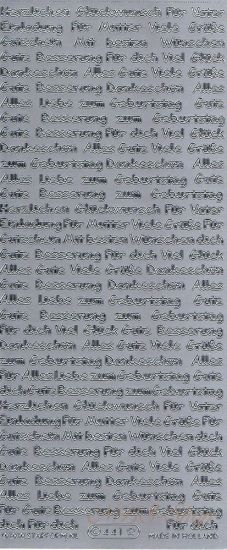 Herzlichen Glückwunsch Für Vater
Einladung Für Meiner Viele Grüße
Gutschein Mit besten Wünschen
Gute Besserung Für dich Viel Glück
Dankeschön Alles Gute Viele Grüße
Gute Besserung Dankeschön Alles
Alles Liebe zum Geburtstag Gute
Gute Besserung Für dich Viel Glück
Dankeschön Alles Gute Viele Grüße
zum Geburtstag Dankeschön Alles
Gute Besserung zum Geburtstag
Alles Liebe zum Geburtstag Gute
Gute Besserung zum Geburtstag
Herzlichen Glückwunsch Für Vater
Einladung Für Meiner Viele Grüße Für
Gutschein Mit besten Wünschen dich
Gute Besserung Für dich Viel Glück
Alles Gute Viele Grüße Dankeschön
Gute Besserung Dankeschön Alles
Alles Liebe zum Geburtstag Gute
Gute Besserung zum Geburtstag
Für dich Viel Glück Gute Besserung
Gute Besserung Dankeschön Alles
zum Geburtstag Dankeschön Alles
Für Alles Liebe zum Geburtstag Gute
dich Gute Besserung zum Geburtstag
Herzlichen Glückwunsch Für Vater
Einladung Für Meiner Viele Grüße Für
Gutschein Mit besten Wünschen dich
Gute Besserung Für dich Viel Glück
Dankeschön Alles Gute Viele Grüße
Gute Besserung Dankeschön Alles
Alles Liebe zum Geburtstag Gute
dich Für dich Für dich
MADE IN HOLLAND